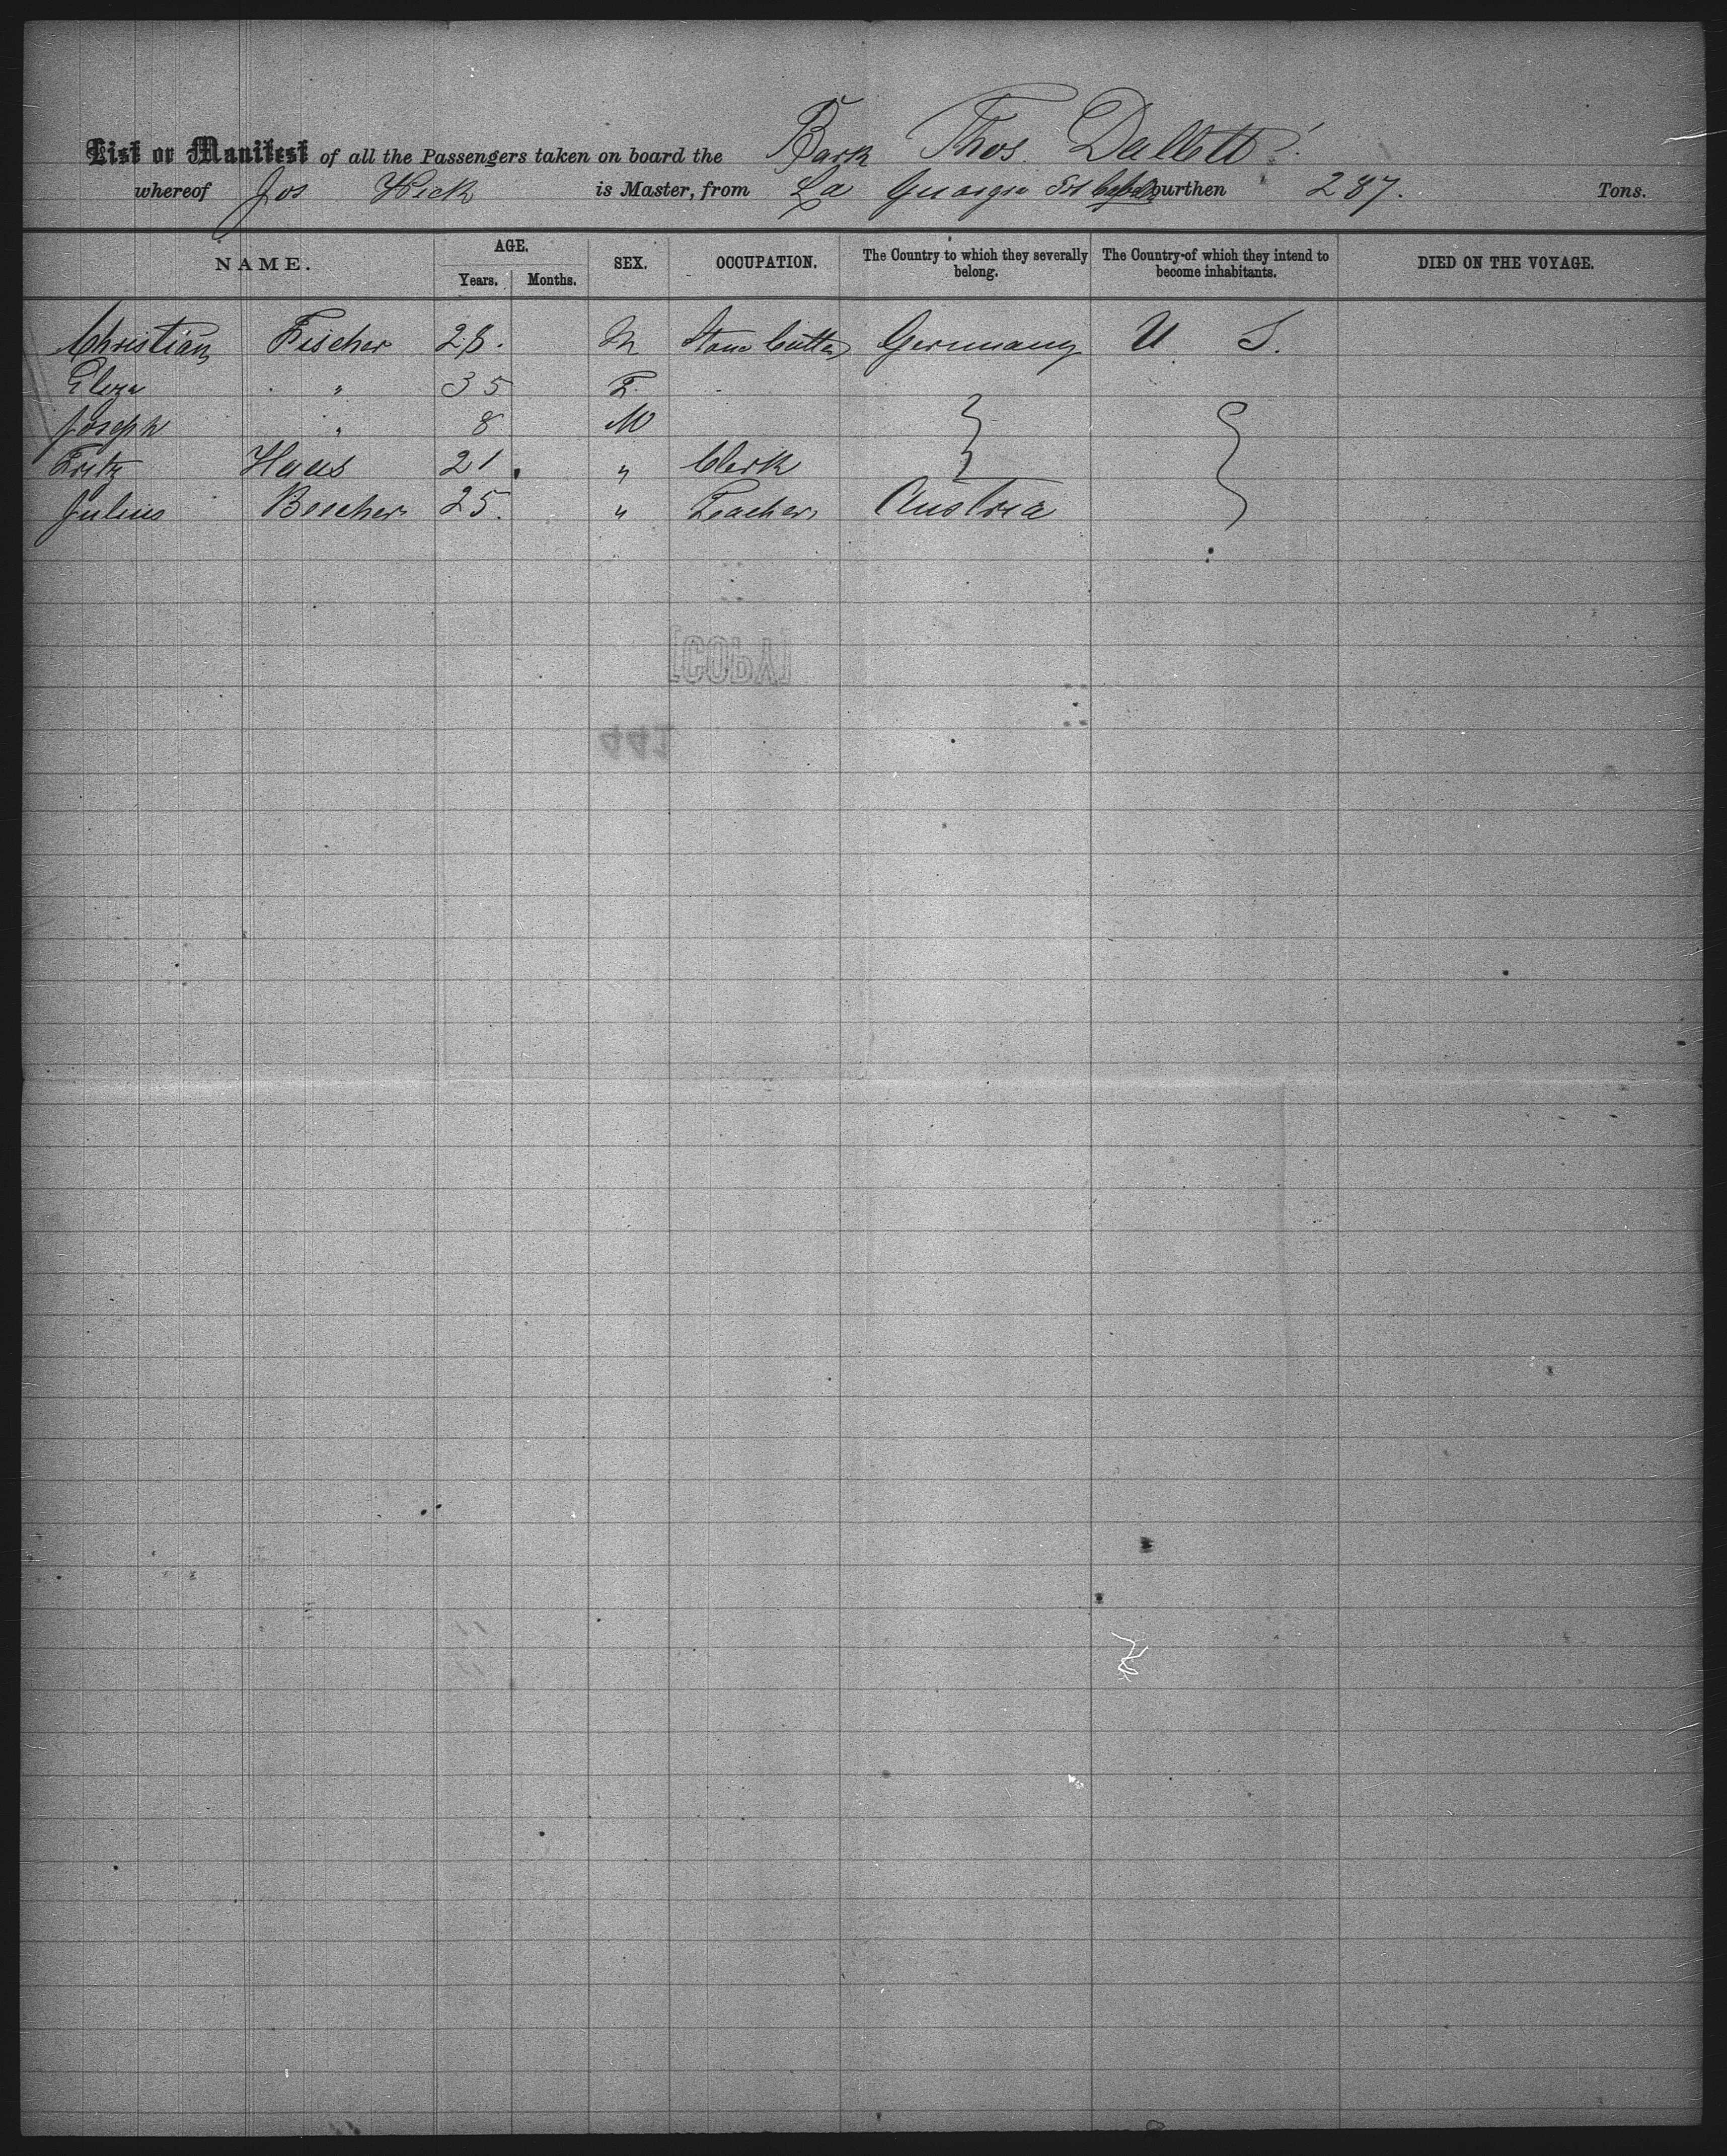 List or Manifest of all the Passengers taken on board the Bark Thos. Dallett
whereof Jos Hick is Master, from La Guayra burthen 287. Tons.
NAME. AGE. Years. Months. SEX. OCCUPATION. The Country to which they severally belong. The Country of which they intend to become inhabitants. DIED ON THE VOYAGE.
Christian Fischer 28. M Stone Cutter Germany U S.
Eliza " 35 F.
Joseph " 8 M
Fritz Haas 21 " Clerk
Julius Beecher 25. " Teacher Austria
[COPY]
441